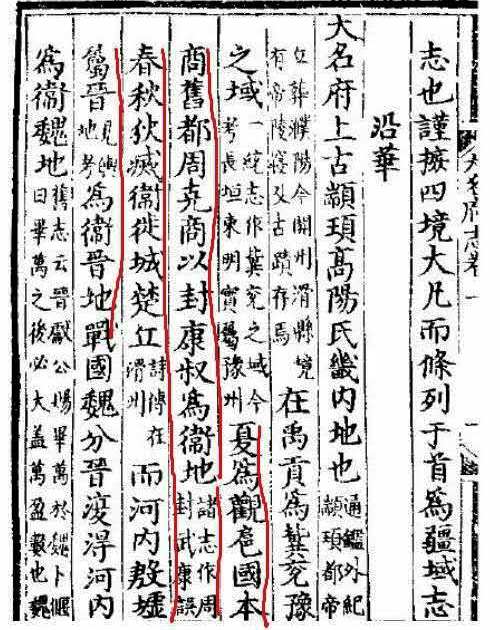 志也謹據四境大凡而條列于首為疆域志
沿革
大名府上古顓頊髙陽氏畿内地也通鑑外紀顓頊都帝
丘葬濮陽今開州滑縣境有帝陵寢及古蹟存焉在禹貢為冀兖豫
之域一統志作冀兖之域今考長垣東明實屬豫州夏為觀扈國本
商舊都周克商以封康叔為衛地諸志作周封武康誤
春秋狄滅衛徙城楚丘詩傳在滑州而河内殷墟
屬晉見輿地考為衛晉地戰國魏分晉復得河内
為衛魏地舊志云晉獻公賜畢萬於魏卜偃曰畢萬之後必大盖萬盈數也魏